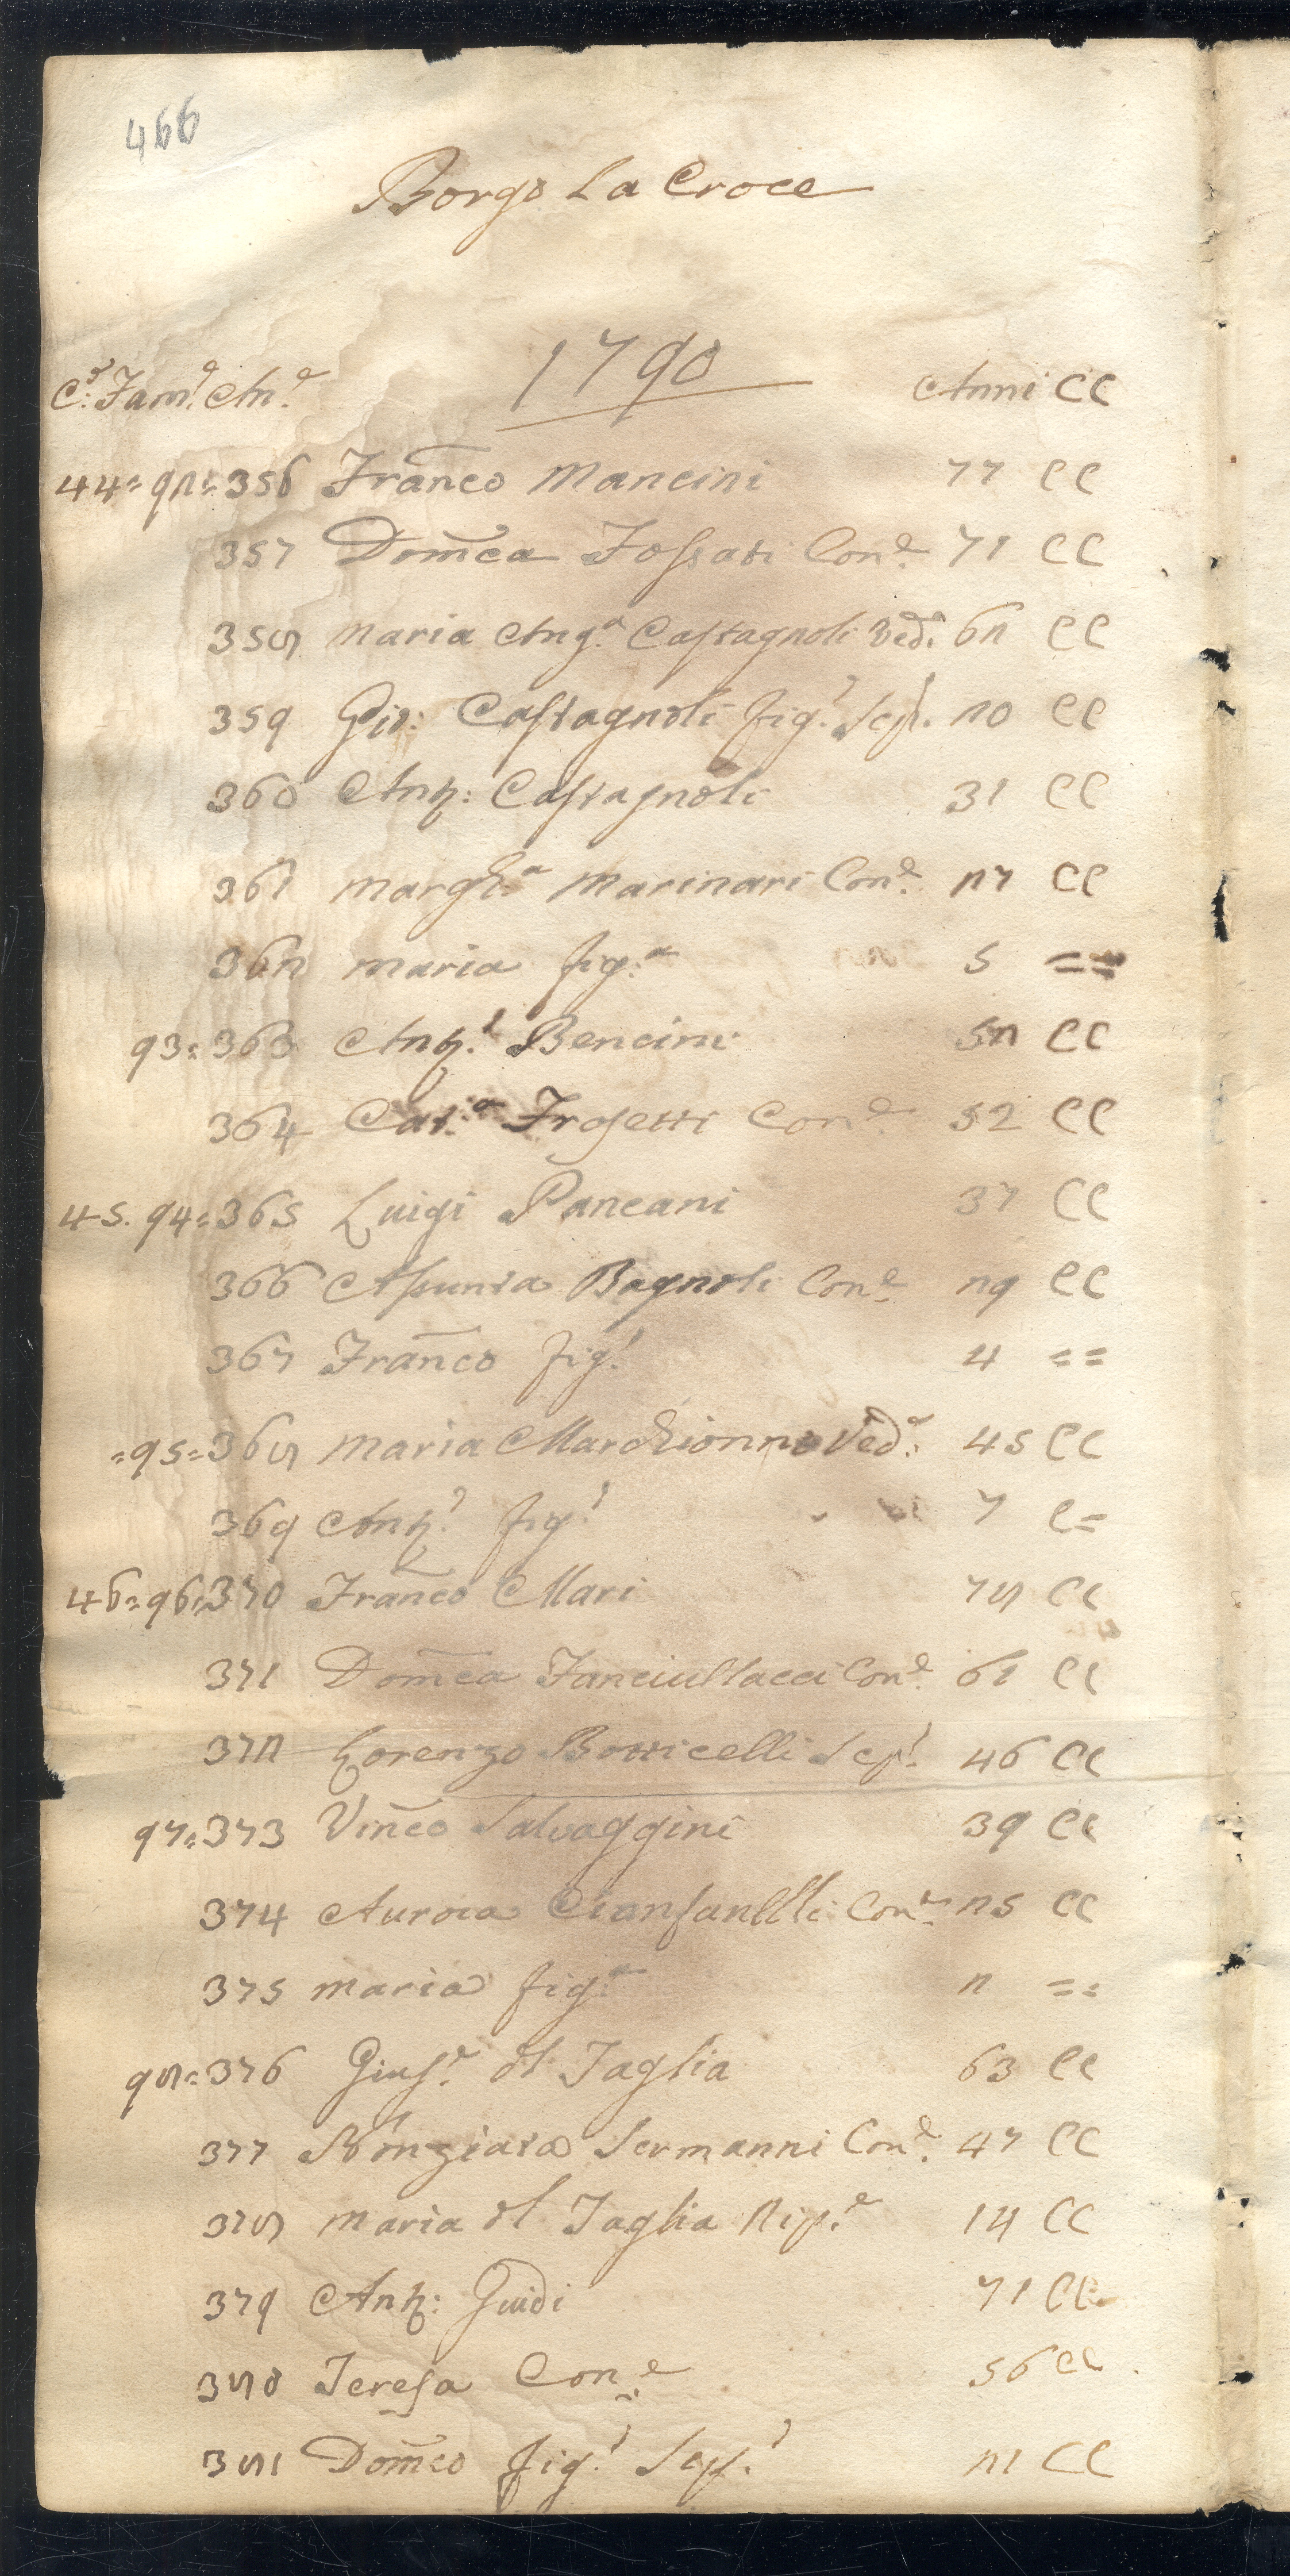 466
Borgo La Croce
1790
C.e Fam.e An.e Anni CC
44= 92= 356 Franco Mancini 77 CC
357 Domca Fossati Con.e 71 CC
358 Maria Ang.a Castagnoli Ved.a 62 CC
359 Gio: Castagnoli fig.o Scp.o 20 CC
360 Ant: Castagnoli 31 CC
361 Margh.a Marinari Con.e 27 CC
362 Maria fig.a 5 ==
93= 363 Ant.o Bencini 52 CC
364 Cat.a Frosetti Con.e 52 CC
45. 94= 365 Luigi Paneani 37 CC
366 Assunta Bagnoli Con.e 29 CC
367 Franco fig.o 4 ==
=95= 368 Maria Marchionni Ved.a 45 CC
369 Ant.o fig.o 7 C=
46= 96= 370 Franco Mari 78 CC
371 Domca Fanciullacci Con.e 61 CC
372 Lorenzo Botticelli Scp.o 46 CC
97= 373 Vinco Salvaggini 39 CC
374 Aurora Cianfanelli Con.e 25 CC
375 Maria fig.a 2 ==
98= 376 Gius.e del Taglia 63 CC
377 Nunziata Sermanni Con.e 47 CC
378 Maria del Taglia Nip.e 14 CC
379 Ant: Guidi 71 CC
380 Teresa Con.e 56 CC
381 Domco fig.o Scp.o 21 CC